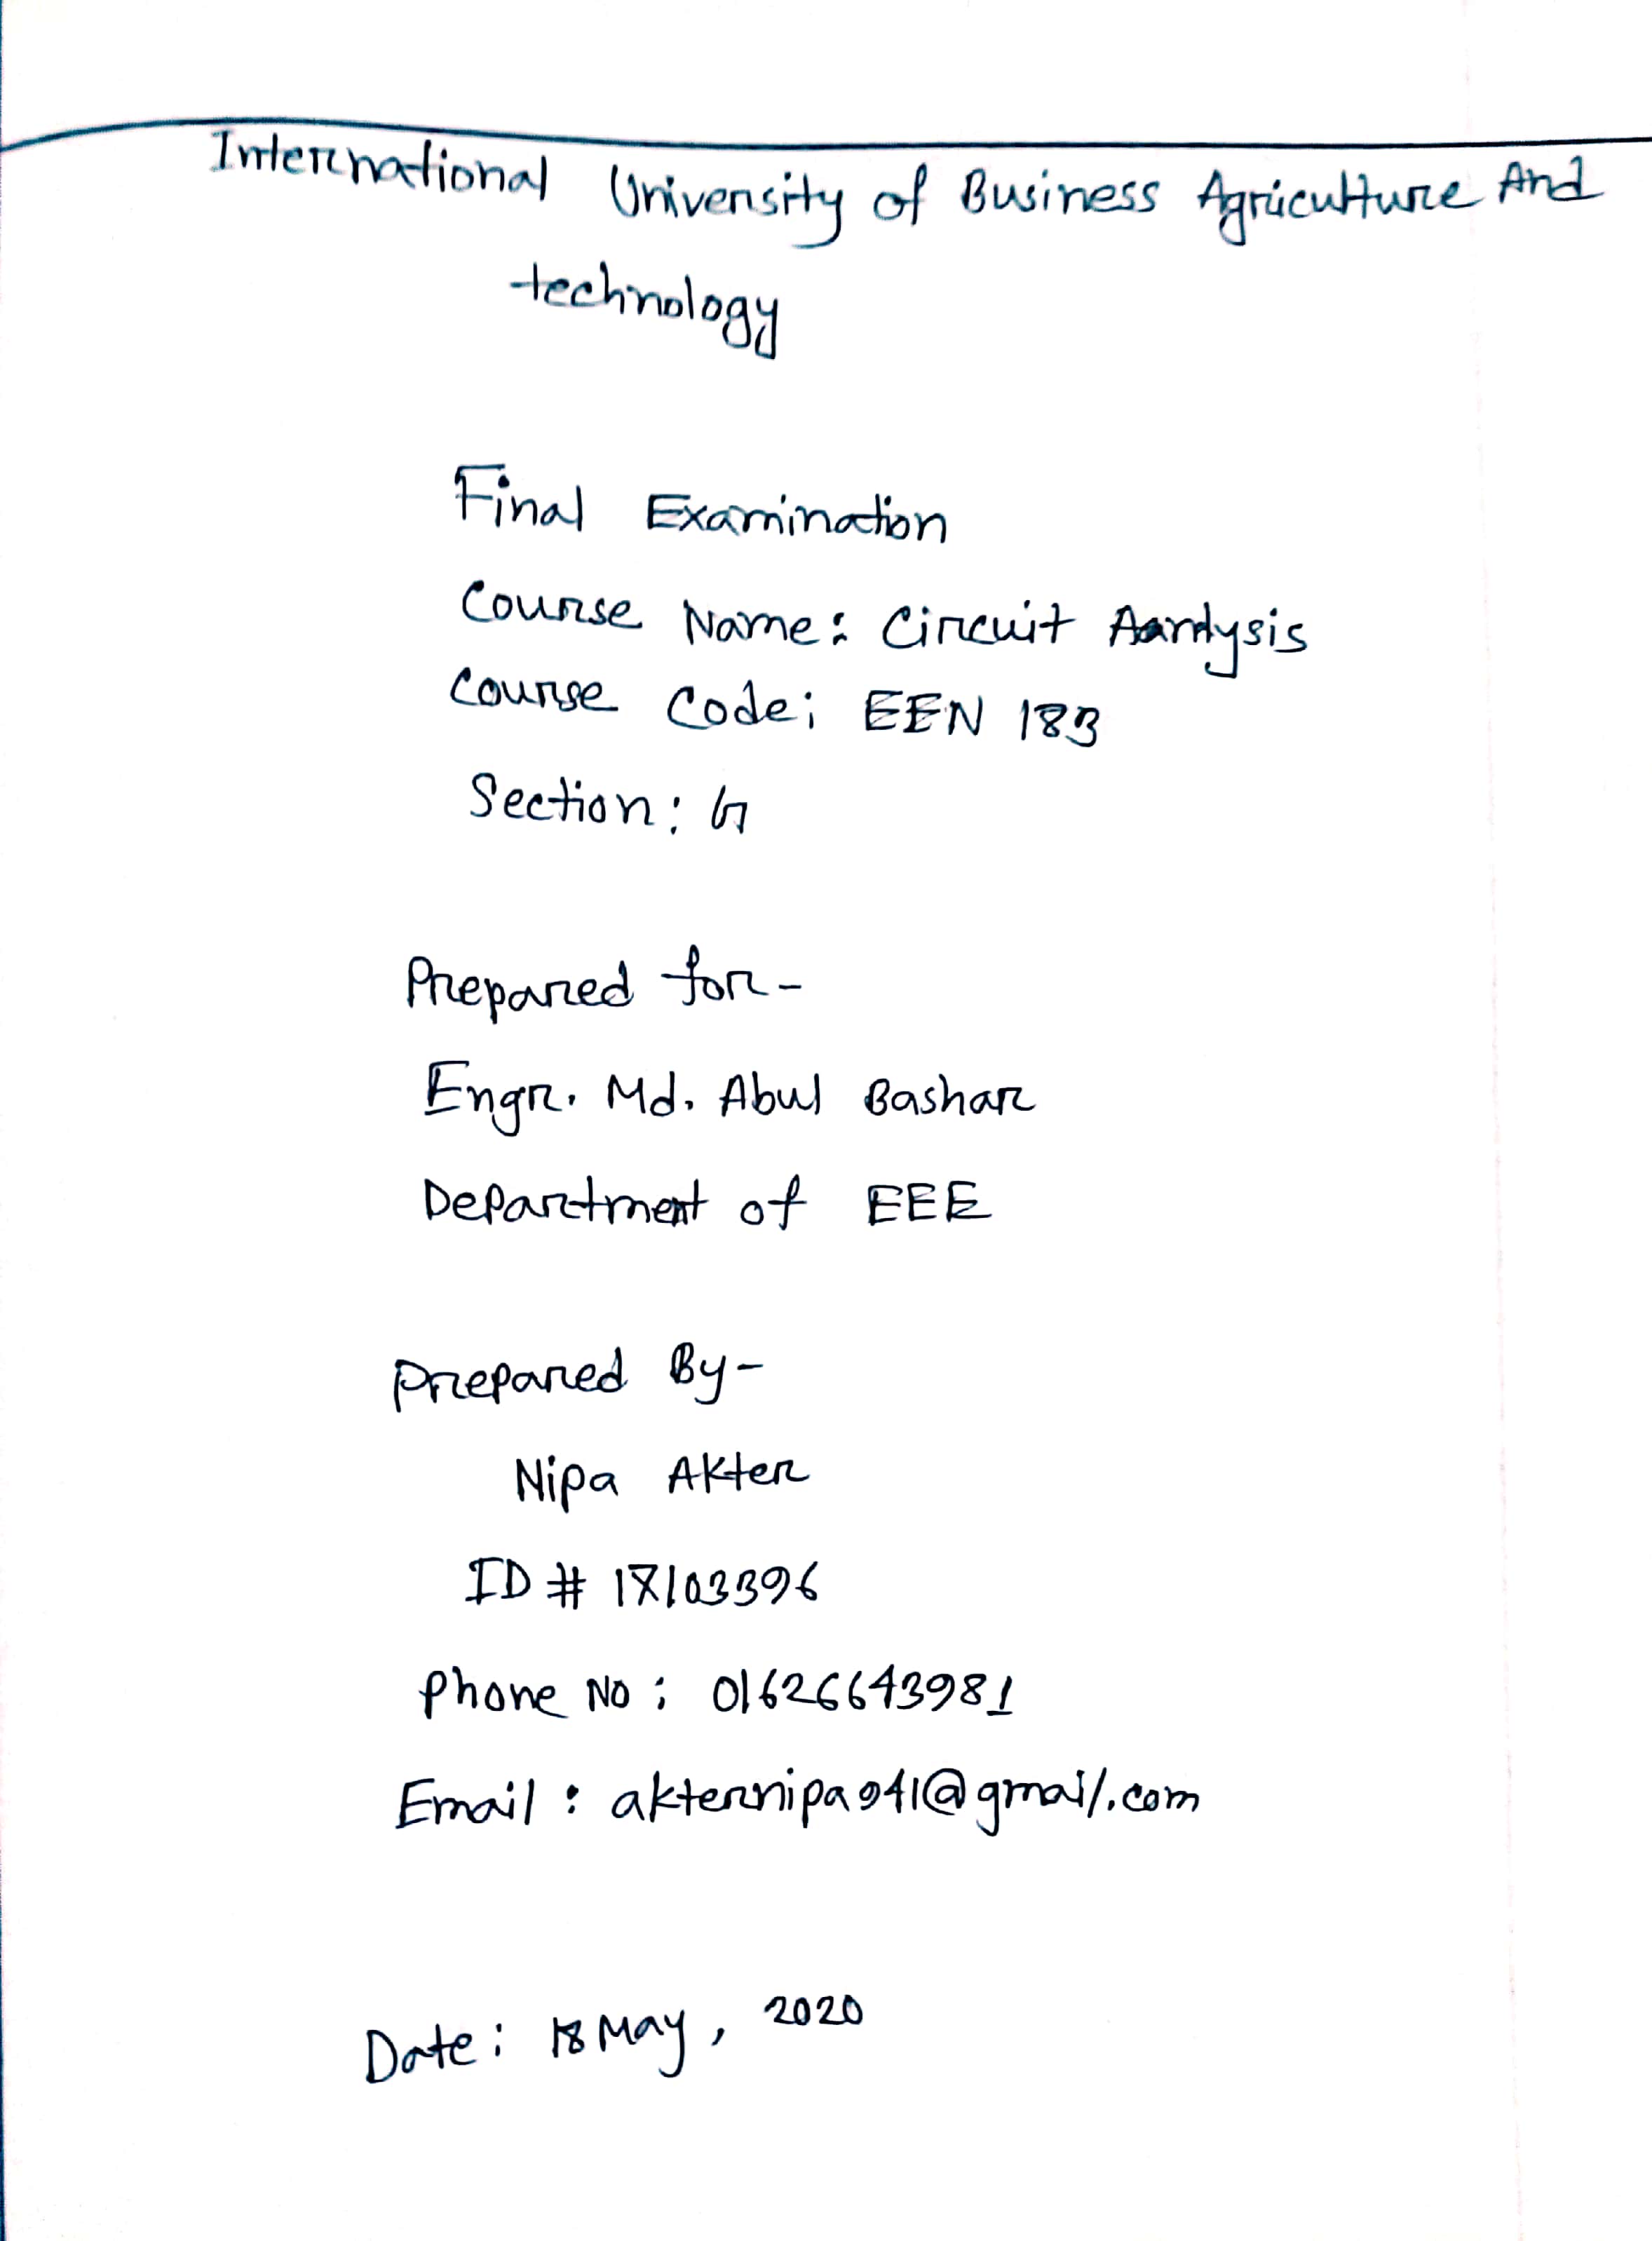 International University of Business Agriculture And
technology
Final Examination
Course Name: Circuit Aanalysis
Course Code: EEN 183
Section: G
Prepared for-
Engr. Md. Abul Bashar
Department of EEE
Prepared By-
Nipa Akter
ID # 18103396
Phone No: 01626643981
Email: akternipa941@gmail.com
Date: 18 May, 2020